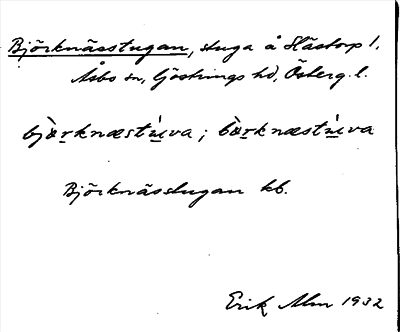 Björknässtugan, stuga å Hästorp 1,
Åsbo sn, Göstrings hd, Österg. l.
bjæ̀rknæstúva; bæ̀rknæstúva
Björknässtugan kb.
Erik Alm 1932